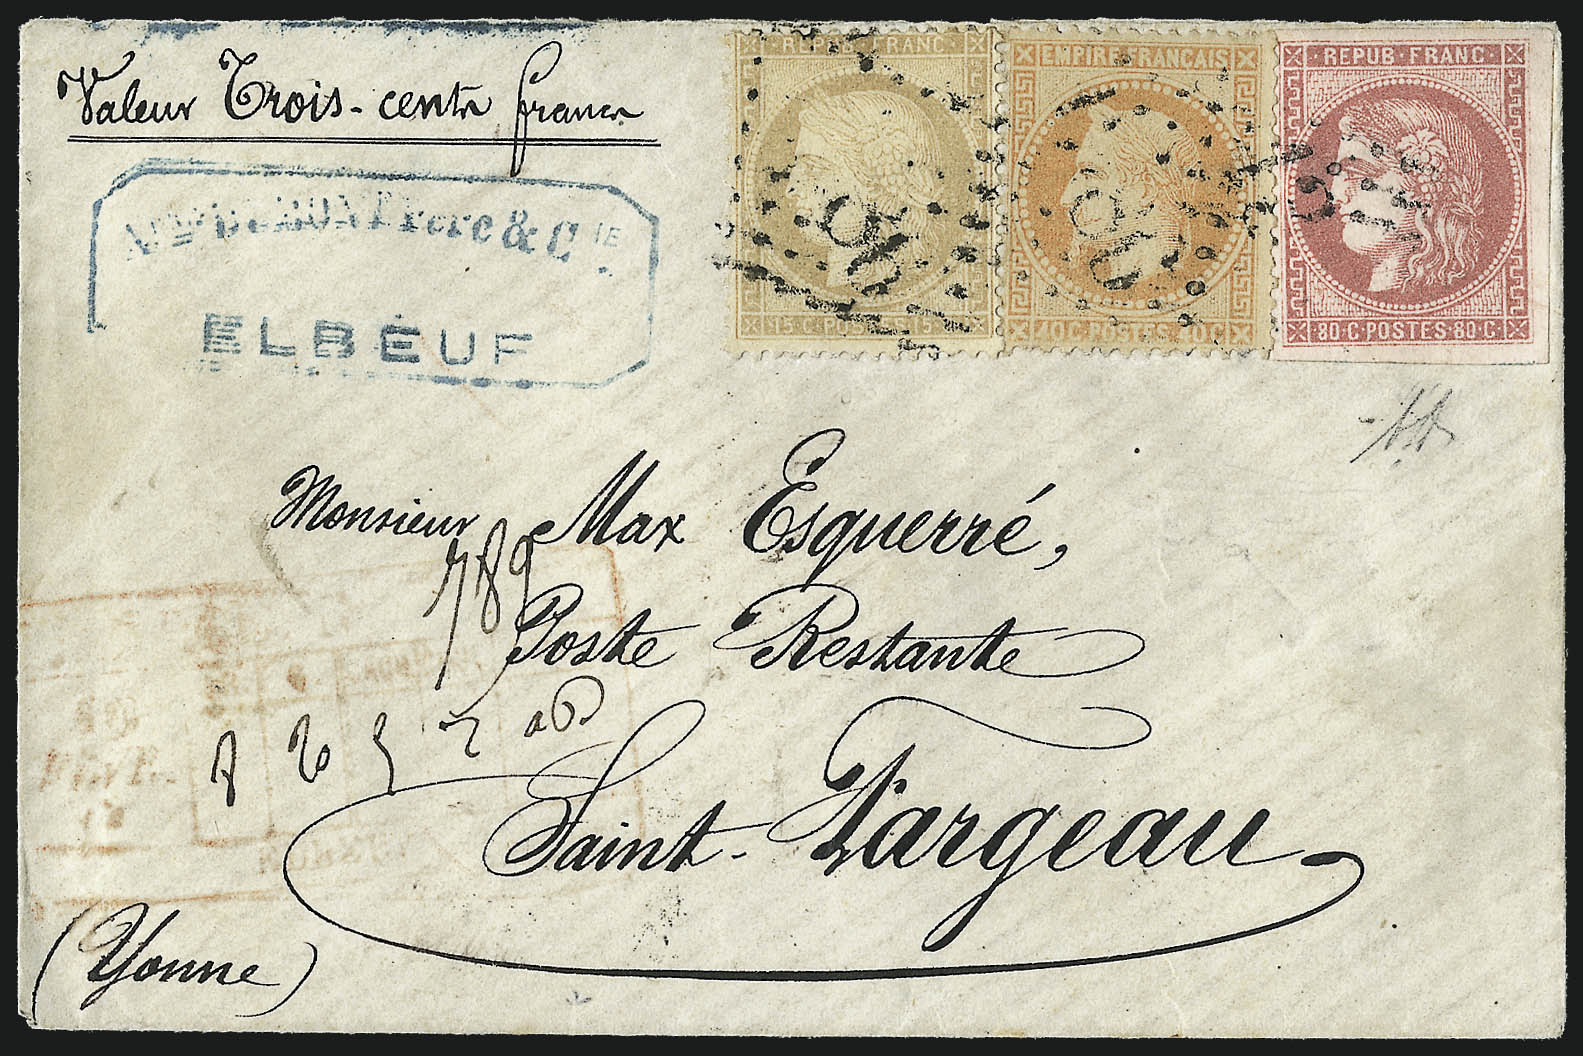 Valeur Trois-cents francs
Frère & Cie
ELBEUF
REPUB FRANC
15 C POSTES 15
EMPIRE FRANÇAIS
40 C POSTES 40 C
REPUB FRANC
80 C POSTES 80 C
Monsieur Max Esquerré,
789
Poste Restante
Saint-Fargeau
(Yonne)